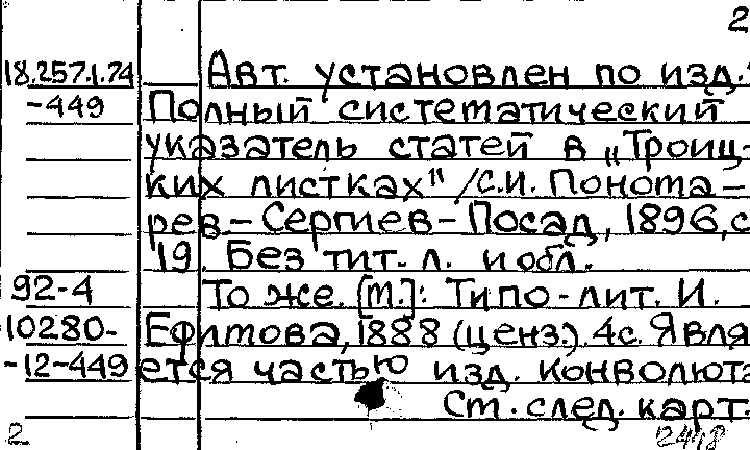 2
18.257.1.74 Авт. установлен по изд.:
-449 Полный систематический
указатель статей в „Троиц-
ких листках" /С.И. Понома-
рев – Сергиев-Посад, 1896, с
19. Без тит. л. и обл.
92-4 То же. [М.]: Типо-лит. И.
10280- Ефимова, 1888 (ценз.). 4с. Явля
-12-449 ется частью изд. конволюта
См. след. карт.
2 2498